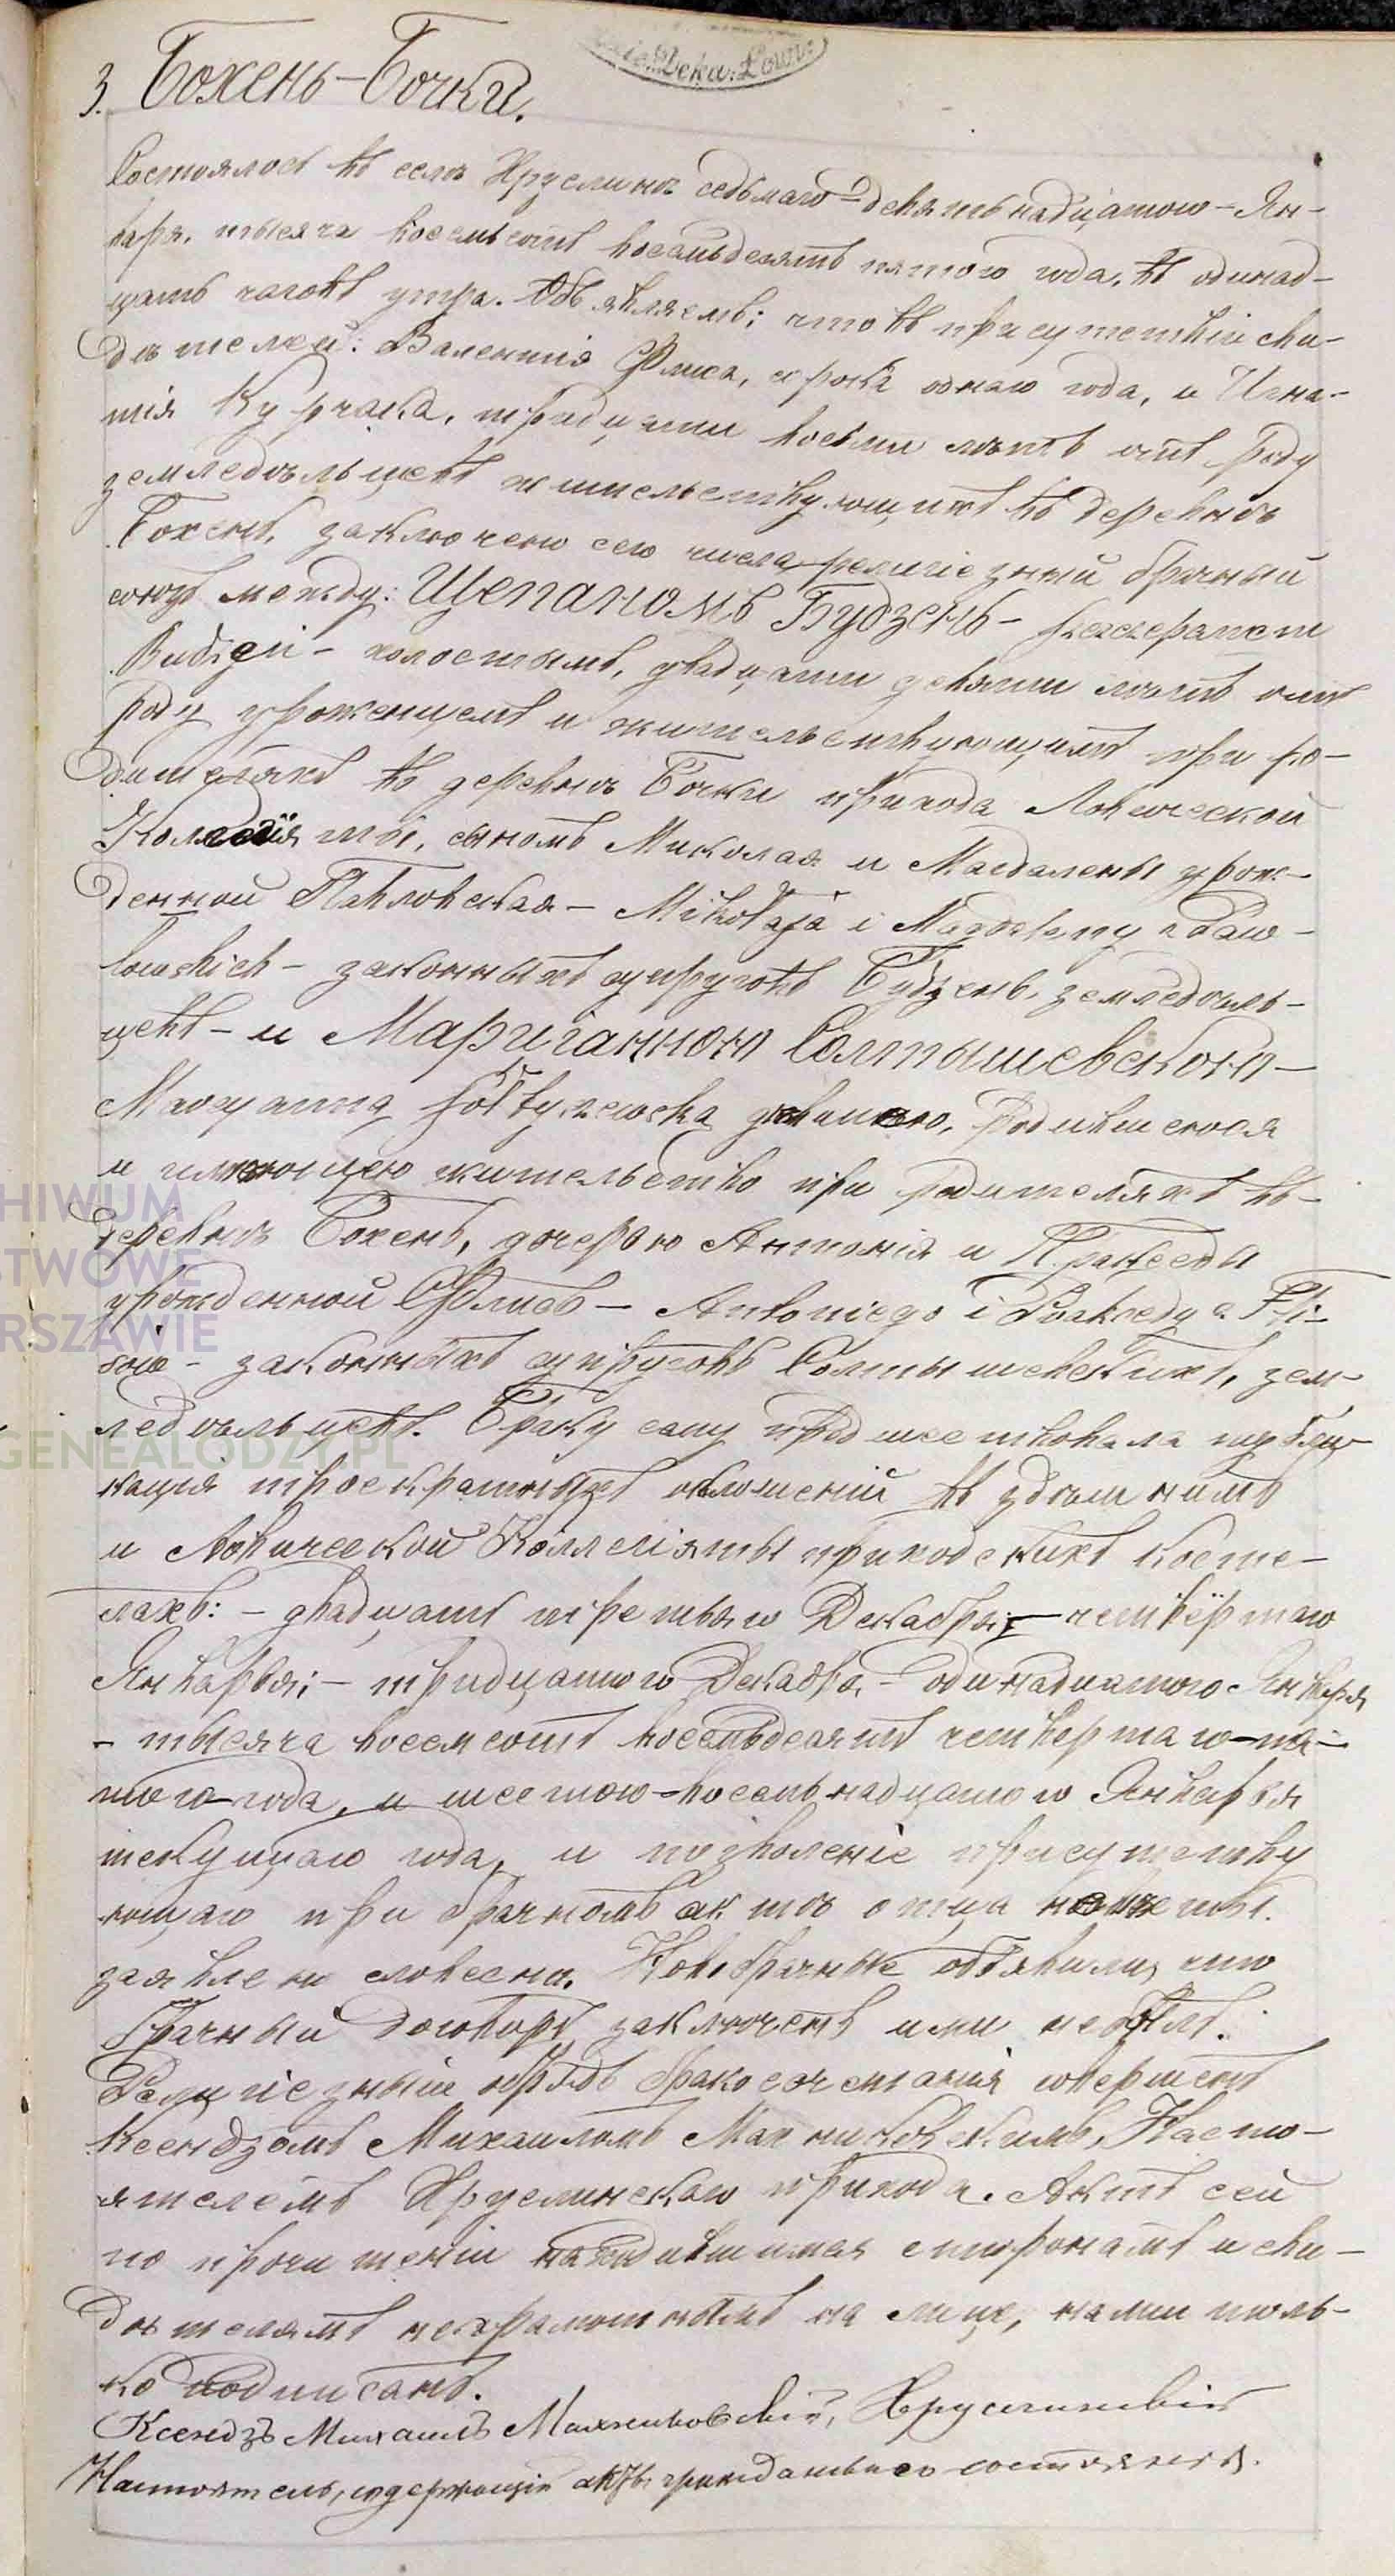 3. Бохень–Бочки.
Deka: Łowi:
Состоялось въ селѣ Хруслинѣ седьмаго–девятьнадцатого–Ян-
варя, тысяча восемьсотъ восемьдесятъ пятого года, въ одинад-
цать часовъ утра. Объявляемъ: что въ присутствіи сви-
дѣтелей: Валентія Флиса, сорокъ одного года, и Игна-
тія Курчака, тридцати восьми лѣтъ отъ роду
земледѣльцевъ жительствующихъ въ деревнѣ
Бохень, заключенъ сего числа религіезный брачный
союзъ между: Щепаномъ Будзень –
– холостымъ, двадцати девяти лѣтъ отъ
роду уроженцемъ и жительствующимъ при ро-
дителяхъ въ деревнѣ Бочки прихода Ловической
Коллегіяты, сыномъ Миколая и Магдалены урож-
денной Павловская – Mikołaja i Magdaleny z Paw-
łowskich – законныхъ супруговъ Будзень, земледѣль-
цевъ – и Маріянною Солтышевскою –
Maryanną Sołtyszewską дѣвицею, родившеюся
и имѣющею жительство при родителяхъ въ–
деревнѣ Бохень, дочерью Антонія и Пракседы
урожденной Флисъ – Antoniego i Praksedy z Fli-
sów – законныхъ супруговъ Солтышевскихъ, зем-
ледѣльцевъ. Браку сему предшествовала публи-
кація троекратныхъ оглошеній въ здѣшнимъ
и Ловической Коллегіяты приходскихъ косте-
лахъ: – двадцать третьяго Декабря – четвёртаго
Января; – тридцатого Декабря – одинадцатого Января
– тысяча восемсотъ восемьдесятъ четвертаго–пя-
того года, и шестого–восемьнадцатого Января
текущаго года, и позволеніе присутству
ющаго при брачномъ актѣ отца невѣсты.
заявлено словесно. Новобрачные объявили, что
брачный договоръ заключенъ ими небылъ.
Религіезный обрядъ бракосочетанія совершенъ
Ксендзомъ Михаиломъ Махниковскимъ, Насто-
ятелемъ Хруслинскаго прихода. Актъ сей
по прочитеніи находившимся сторонамъ и сви-
дѣтелямъ неграмотнымъ на лице, нами толь-
ко подписанъ.
Ксендзъ Михаилъ Махниковскій, Хруслинскій
Настоятель, содержащій акты гражданскаго состоянія.
HIWUM
TWOWE
RSZAWIE
GENEALODZY.PL